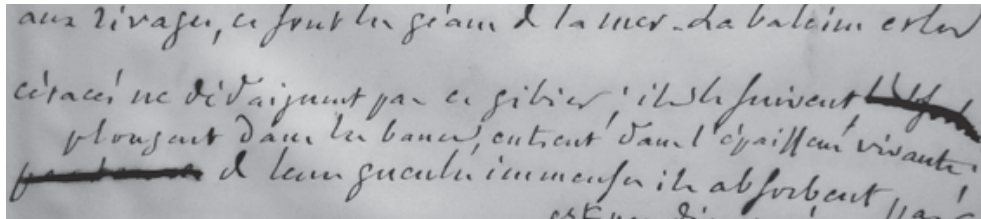 aux rivages, ce sont les géans de la mer. La baleine et les
cétacés ne dédaignent pas ce gibier ; ils le suivent
plongent dans les bancs, entrent dans l'épaisseur vivante ;
de leurs gueules immenses ils absorbent par